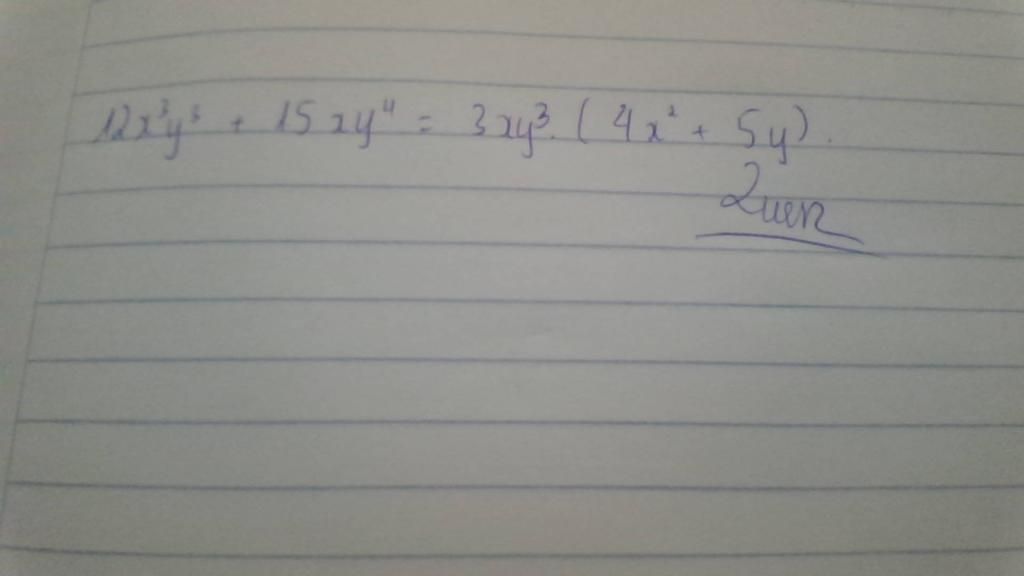 12x³y³ + 15xy⁴ = 3xy³. (4x² + 5y).